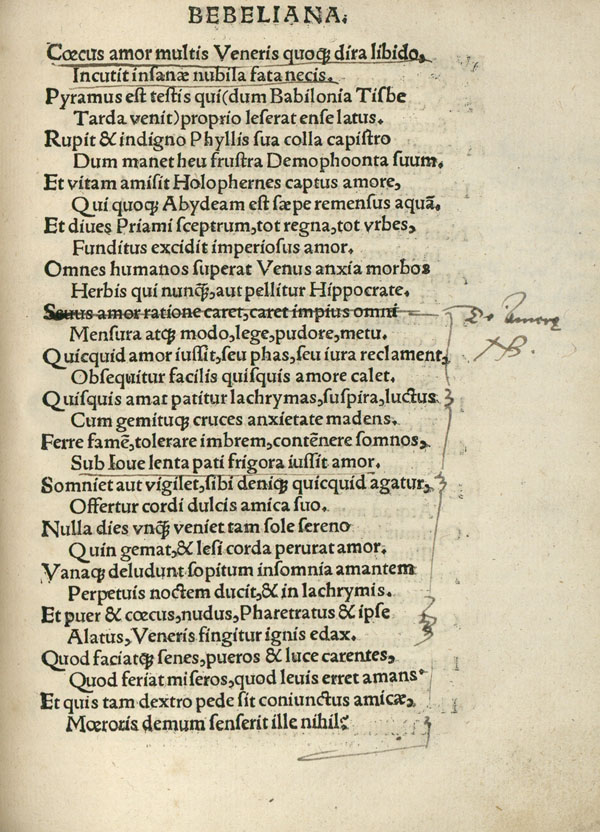 BEBELIANA.
Cœcus amor multis Veneris quoqꝫ dira libido,
Incutit insanæ nubila fata necis.
Pyramus est testis qui(dum Babilonia Tisbe
Tarda venit)proprio leserat ense latus.
Rupit & indigno Phyllis sua colla capistro
Dum manet heu frustra Demophoonta suum.
Et vitam amisit Holophernes captus amore,
Qui quoqꝫ Abydeam est sæpe remensus aquã.
Et diues Priami sceptrum, tot regna, tot vrbes,
Funditus excidit imperiosus amor.
Omnes humanos superat Venus anxia morbos
Herbis qui nunqꝫ, aut pellitur Hippocrate.
Sæuus amor ratione caret, caret impius omni
De Amore
Mensura atqꝫ modo, lege, pudore, metu.
Quicquid amor iussit, seu phas, seu iura reclament,
Obsequitur facilis quisquis amore calet.
Quisquis amat patitur lachrymas, suspira, luctus
Cum gemituqꝫ cruces anxietate madens.
Ferre famẽ, tolerare imbrem, contẽnere somnos,
Sub Ioue lenta pati frigora iussit amor.
Somniet aut vigilet, sibi deniqꝫ quicquid agatur,
Offertur cordi dulcis amica suo.
Nulla dies vnqꝫ veniet tam sole sereno
Quin gemat, & lesi corda perurat amor.
Vanaqꝫ deludunt sopitum insomnia amantem
Perpetuis noctem ducit, & in lachrymis.
Et puer & cœcus, nudus, Pharetratus & ipse
Alatus, Veneris fingitur ignis edax.
Quod faciatqꝫ senes, pueros & luce carentes,
Quod feriat miseros, quod leuis erret amans
Et quis tam dextro pede sit coniunctus amicæ,
Mœroris demum senserit ille nihil: